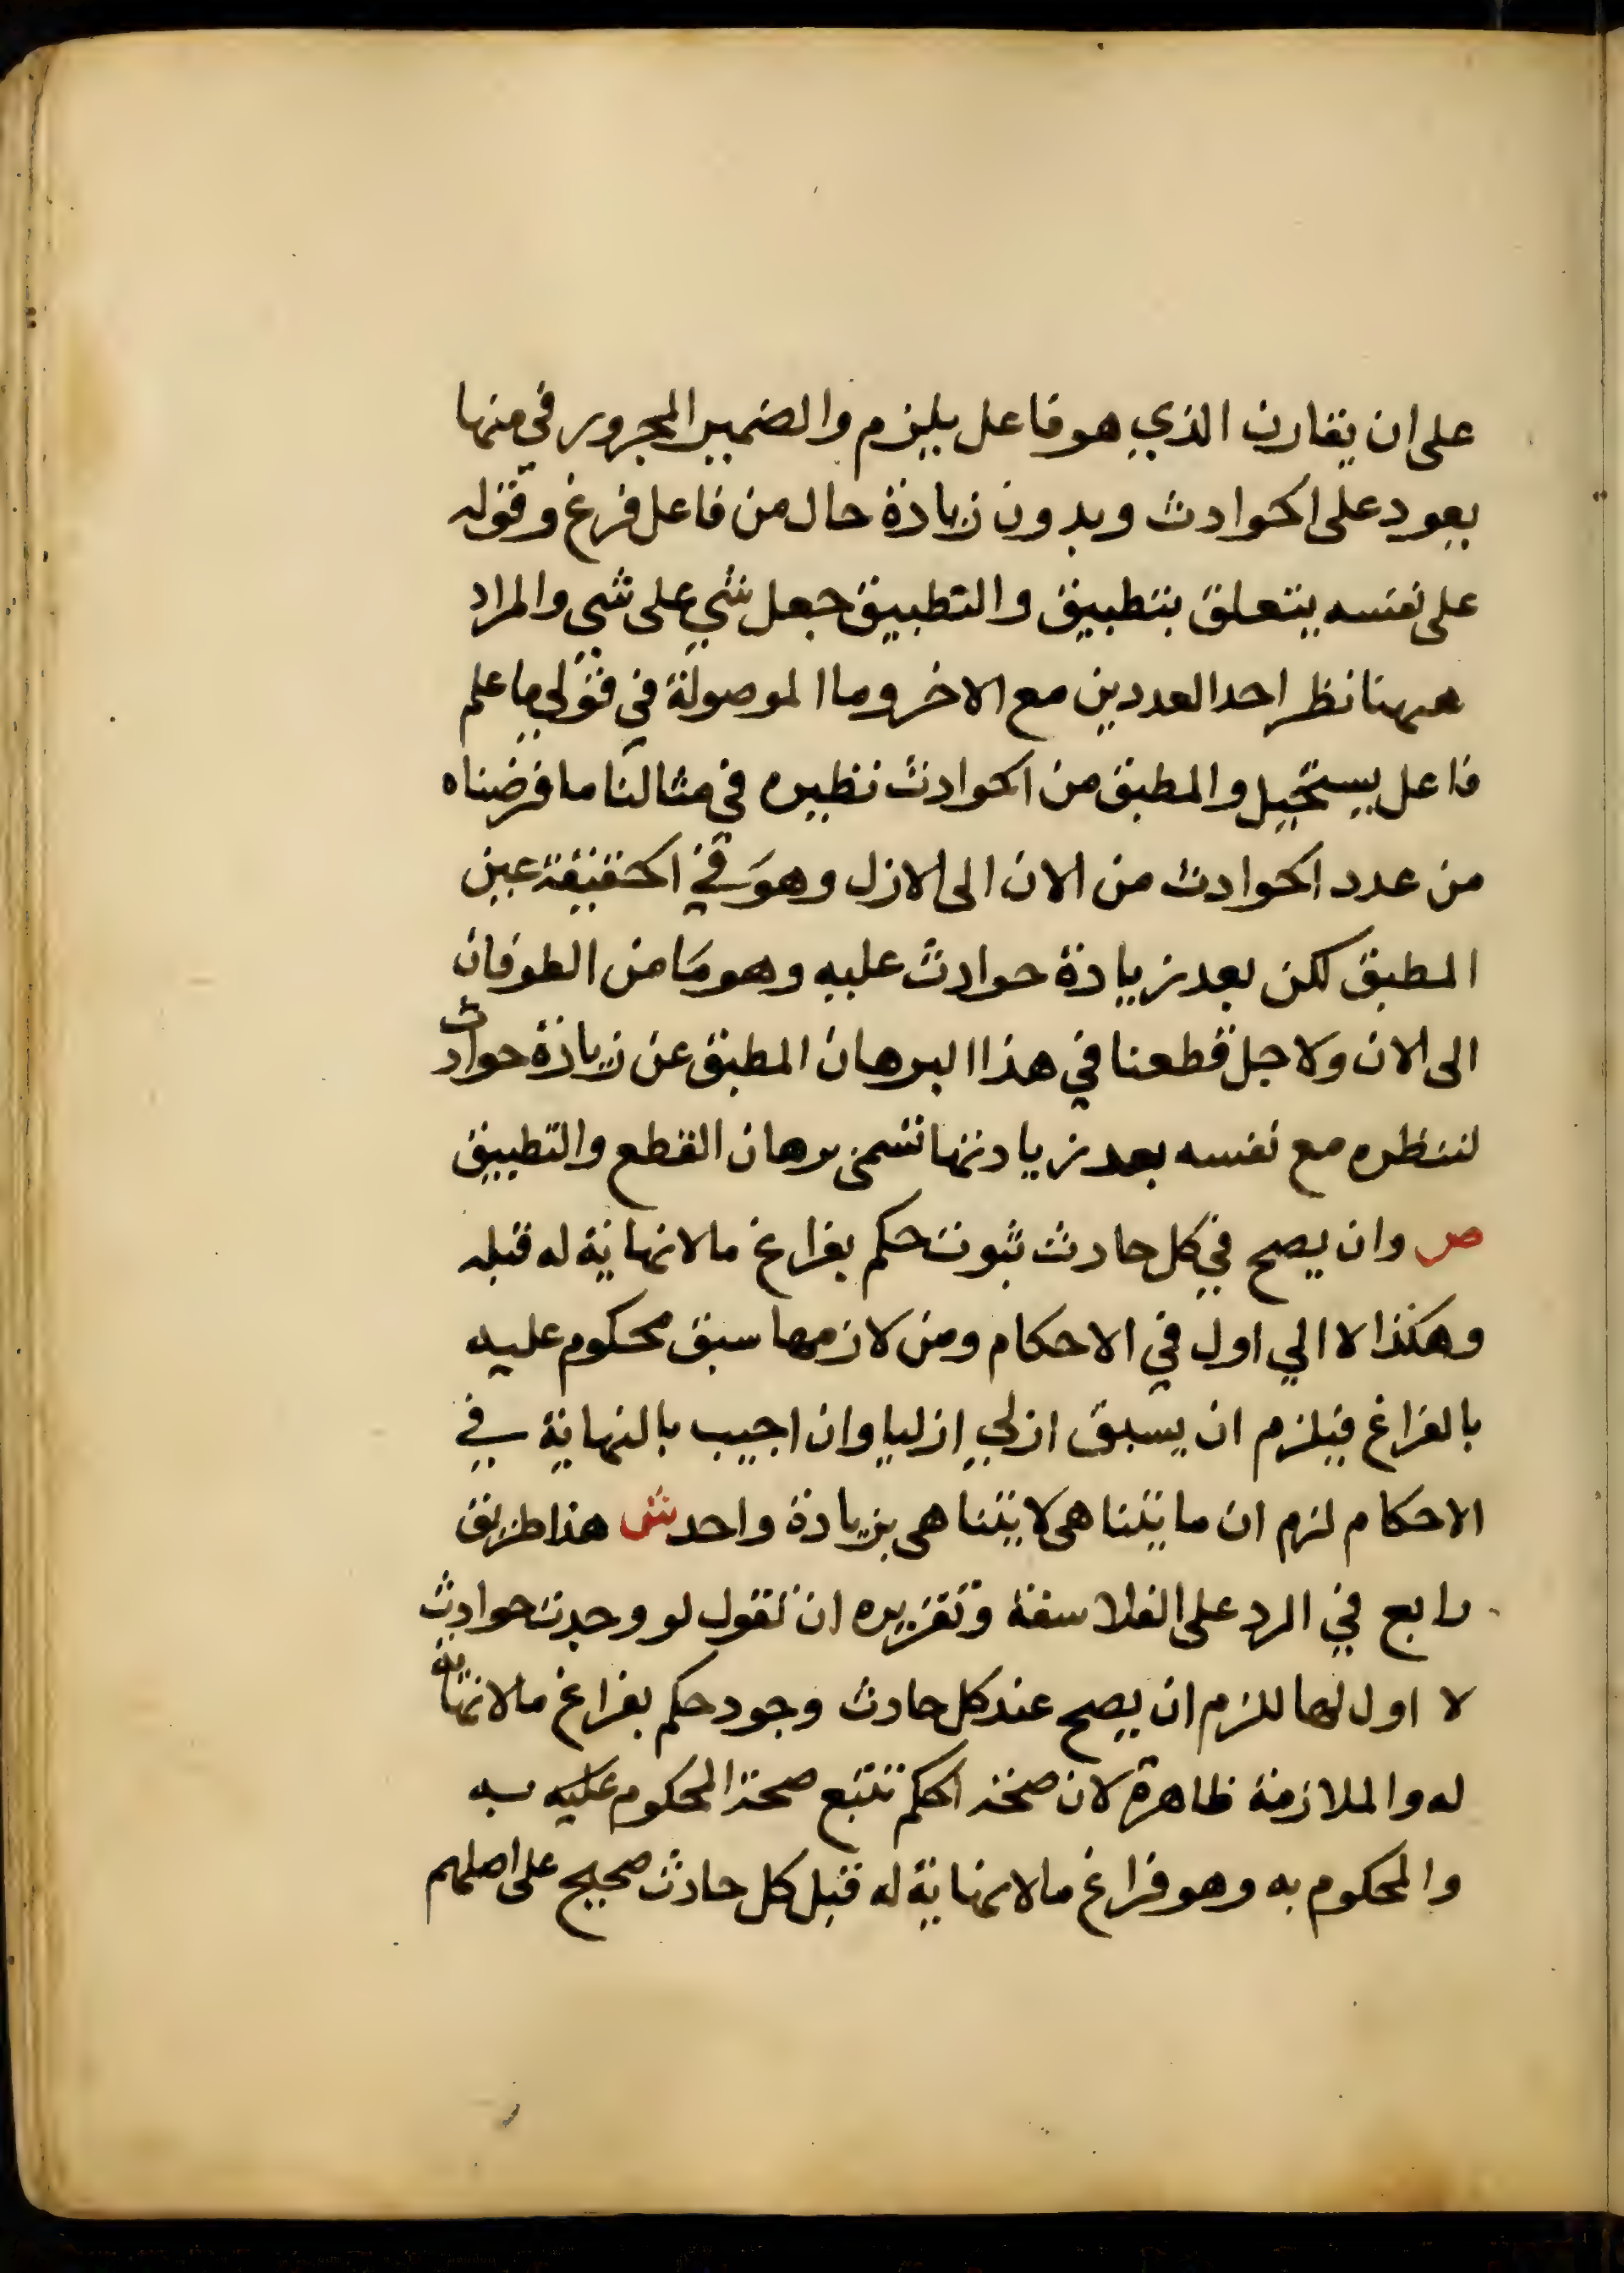 على ان يقارن الذي هو فاعل يلزم والضمير المجرور في منها
يعود على الحوادث وبدون زيادة حال من فاعل فرغ وقوله
على نفسه يتعلق بتطبيق والتطبيق جعل شي على شي والمراد
ههنا نظر احد العددين مع الاخر وما الموصولة في قولي ما علم
فاعل يستحيل والمطبق من الحوادث نظيره في مثالنا ما فرضناه
من عدد الحوادث من الان الى الازل وهو في الحقيقة عين
المطبق لكن بعد زيادة حوادث عليه وهو ما من الطوفان
الى الان ولاجل قطعنا في هذا البرهان المطبق عن زيادة حوادث
لننظره مع نفسه بعد زيادتها تسمى برهان القطع والتطبيق
ص وان يصح في كل حادث ثبوت حكم بفراغ ما لا نهاية له قبله
وهكذا لا الي اول في الاحكام ومن لازمها سبق محكوم عليه
بالفراغ فيلزم ان يسبق ازلي ازليا وان اجيب بالنهاية في
الاحكام لزم ان ما يتناهى لا يتناهى بزيادة واحد ش هذا طريق
رابع في الرد على الفلاسفة وتقريره ان نقول لو وجدت حوادث
لا اول لها للزم ان يصح عند كل حادث وجود حكم بفراغ ما لا نهاية
له والملازمة ظاهرة لان صحة الحكم تتبع صحة المحكوم عليه به
والمحكوم به وهو فراغ ما لا نهاية له قبل كل حادث صحيح على اصلهم